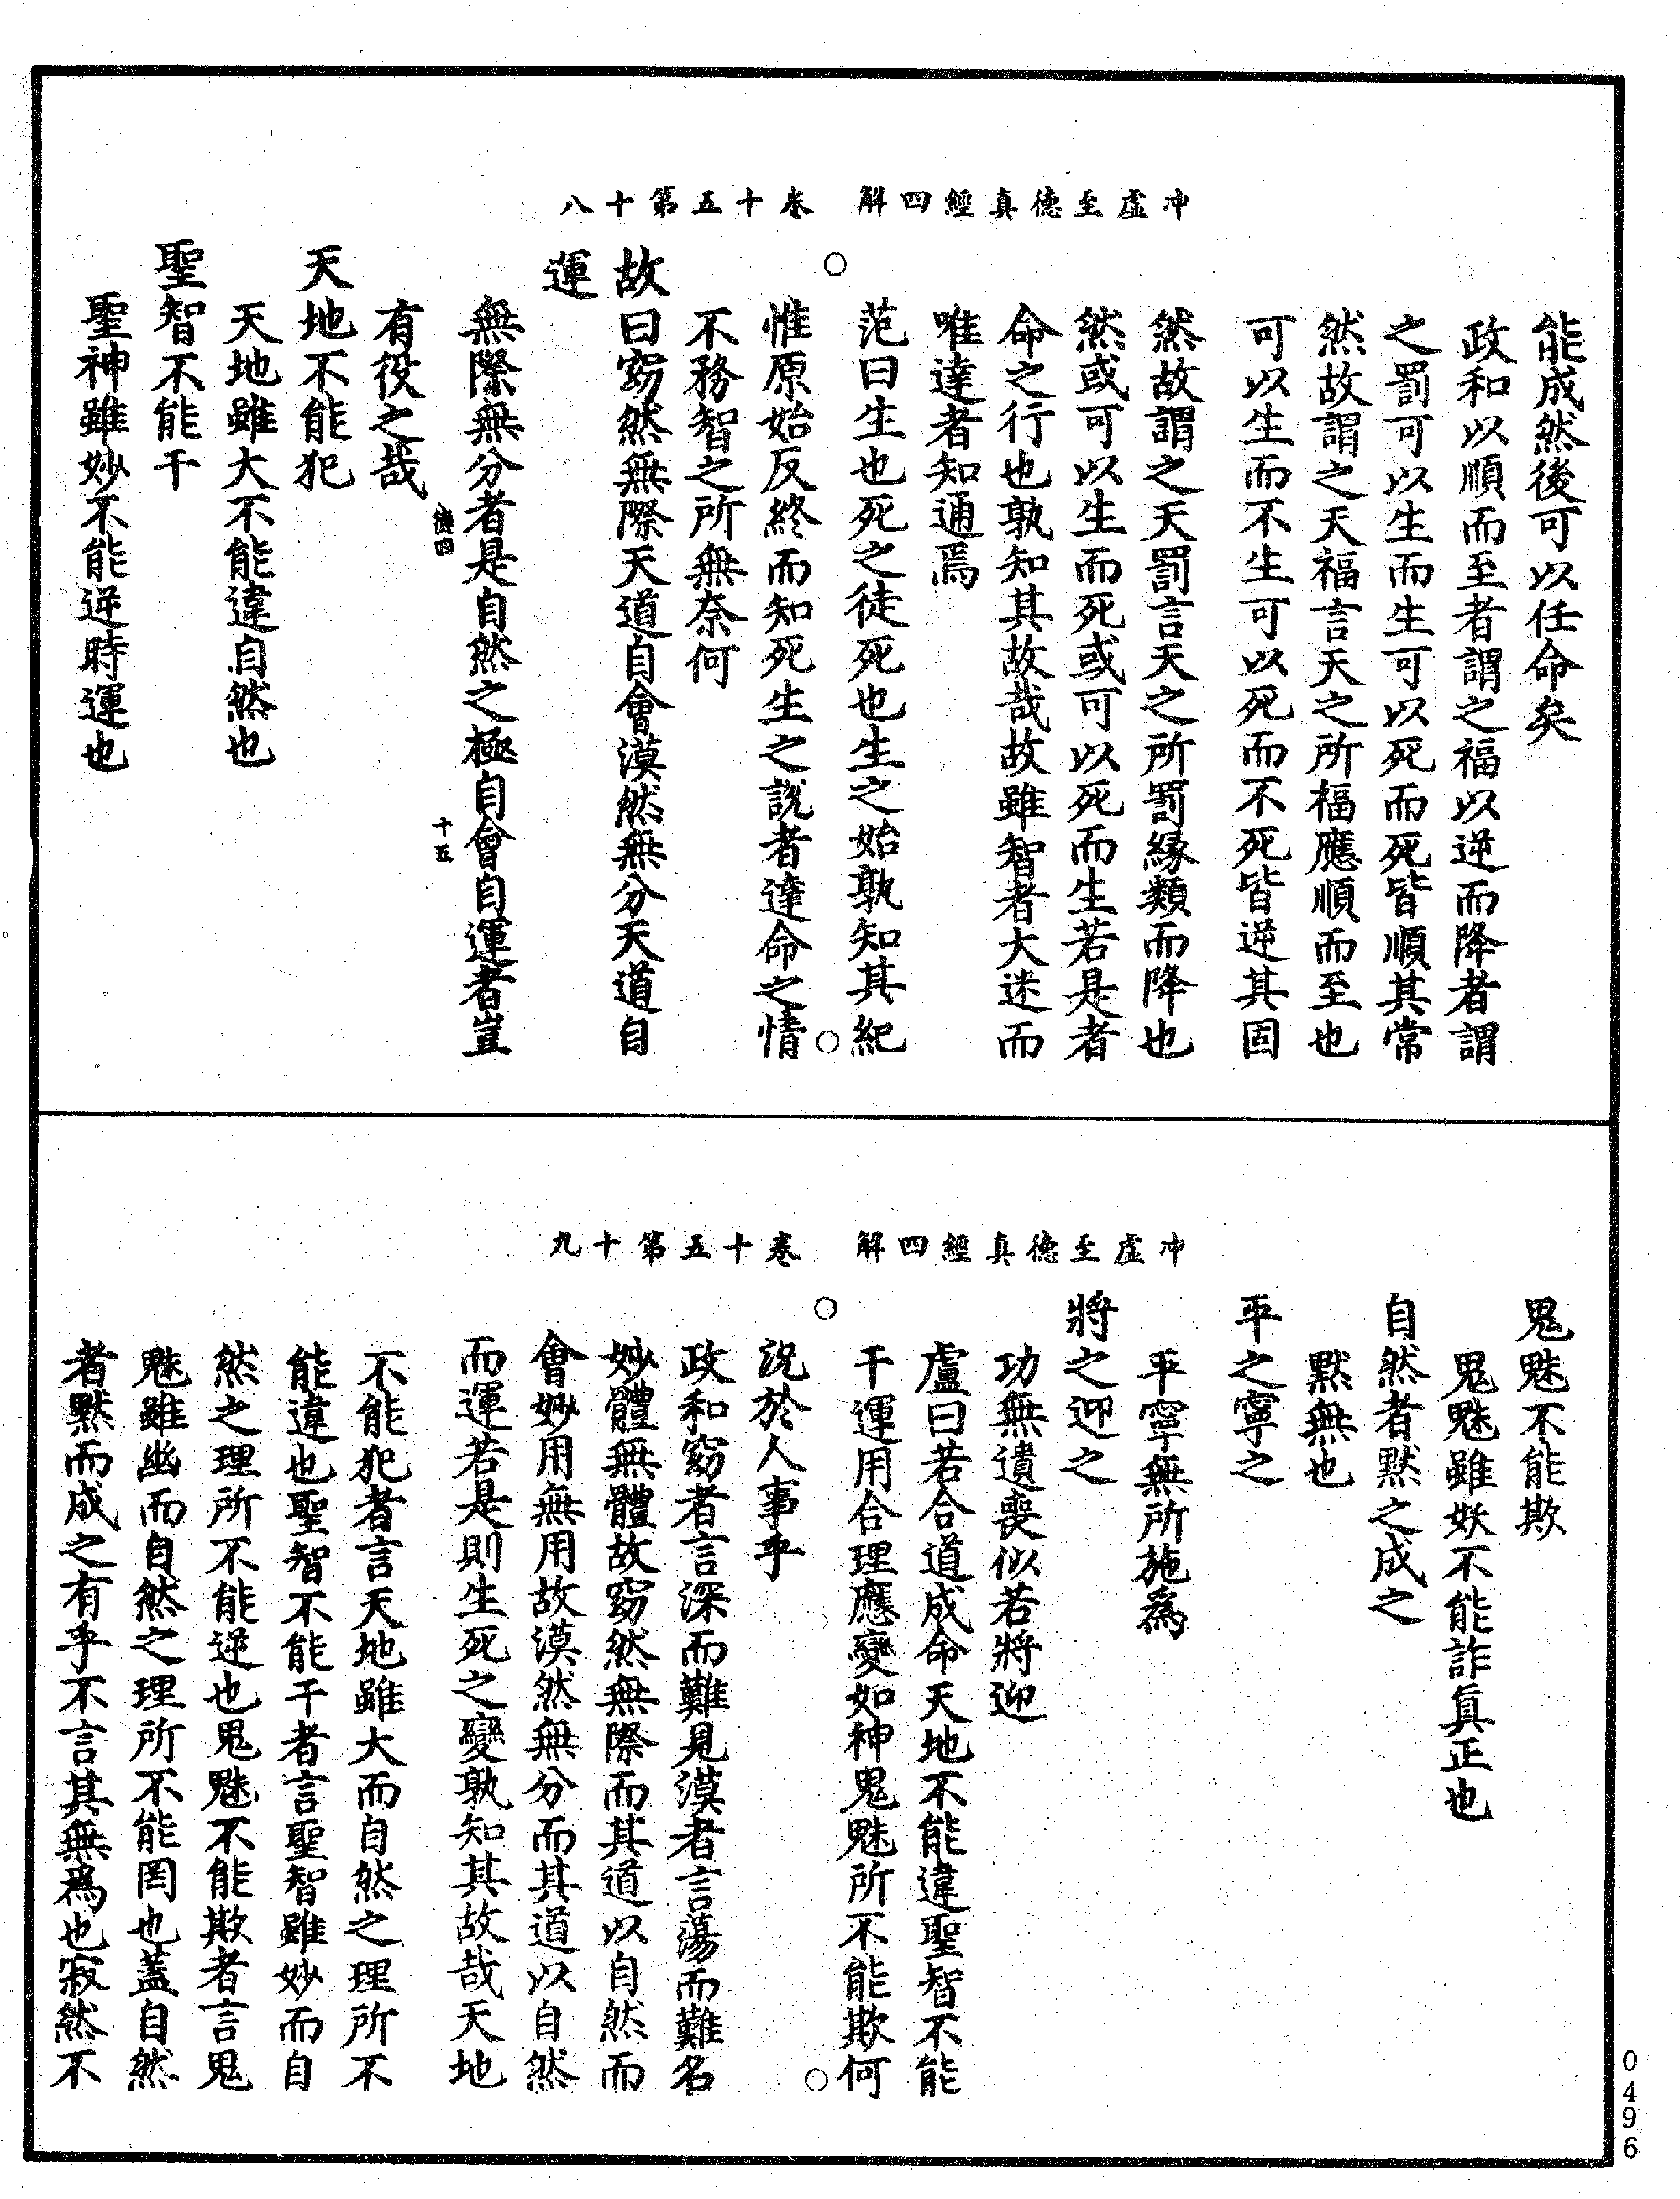 冲虛至德真經四解 卷十五第十八
能成然後可以任命矣
政和以順而至者謂之福以逆而降者謂
之罰可以生而生可以死而死皆順其常
然故謂之天福言天之所福應順而至也
可以生而不生可以死而不死皆逆其固
然故謂之天罰言天之所罰緣類而降也
然或可以生而死或可以死而生若是者
命之行也孰知其故哉故雖智者大迷而
唯達者知通焉
范曰生也死之徒死也生之始孰知其紀
惟原始反終而知死生之說者達命之情
不務智之所無奈何
故曰窈然無際天道自會漠然無分天道自
運
無際無分者是自然之極自會自運者豈
有役之哉
十五
天地不能犯
天地雖大不能違自然也
聖智不能干
聖神雖妙不能逆時運也
冲虛至德真經四解 卷十五第十九
鬼魅不能欺
鬼魅雖妖不能詐真正也
自然者默之成之
默無也
平之寧之
平寧無所施爲
將之迎之
功無遺喪似若將迎
盧曰若合道成命天地不能違聖智不能
干運用合理應變如神鬼魅所不能欺何
況於人事乎
政和窈者言深而難見漠者言蕩而難名
妙體無體故窈然無際而其道以自然而
會妙用無用故漠然無分而其道以自然
而運若是則生死之變孰知其故哉天地
不能犯者言天地雖大而自然之理所不
能違也聖智不能干者言聖智雖妙而自
然之理所不能逆也鬼魅不能欺者言鬼
魅雖幽而自然之理所不能罔也蓋自然
者默而成之有乎不言其無爲也寂然不
0496